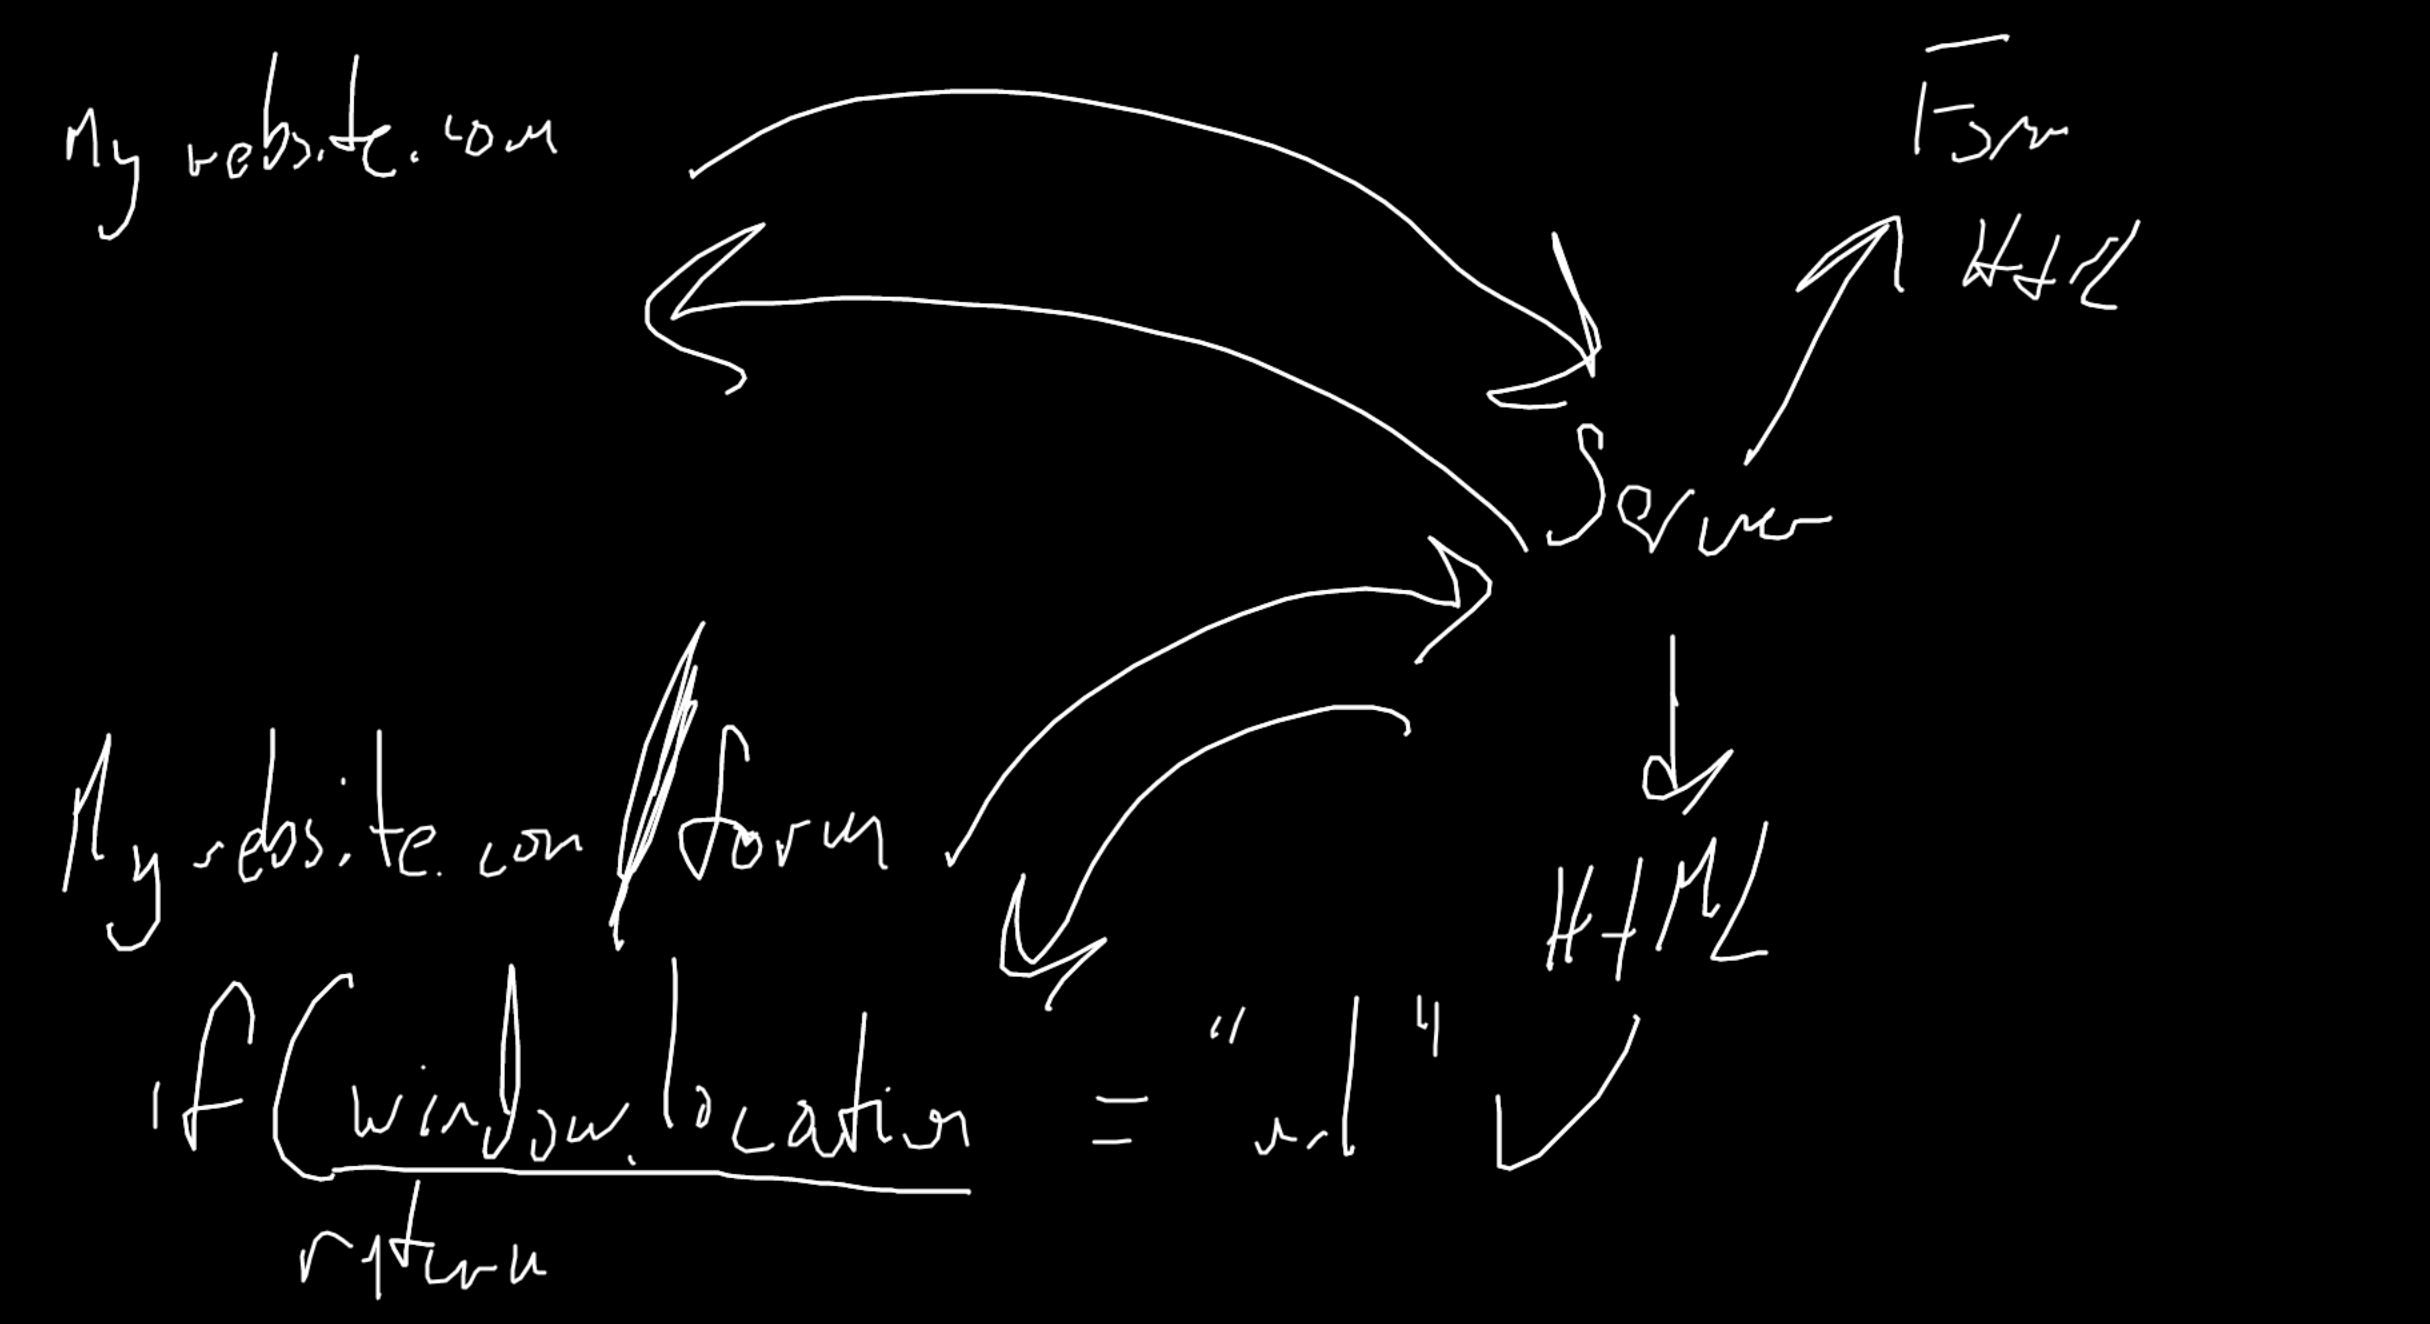 My website.com
Form
HTML
Server
My website.com/form
HTML
if(window.location = "url"
return